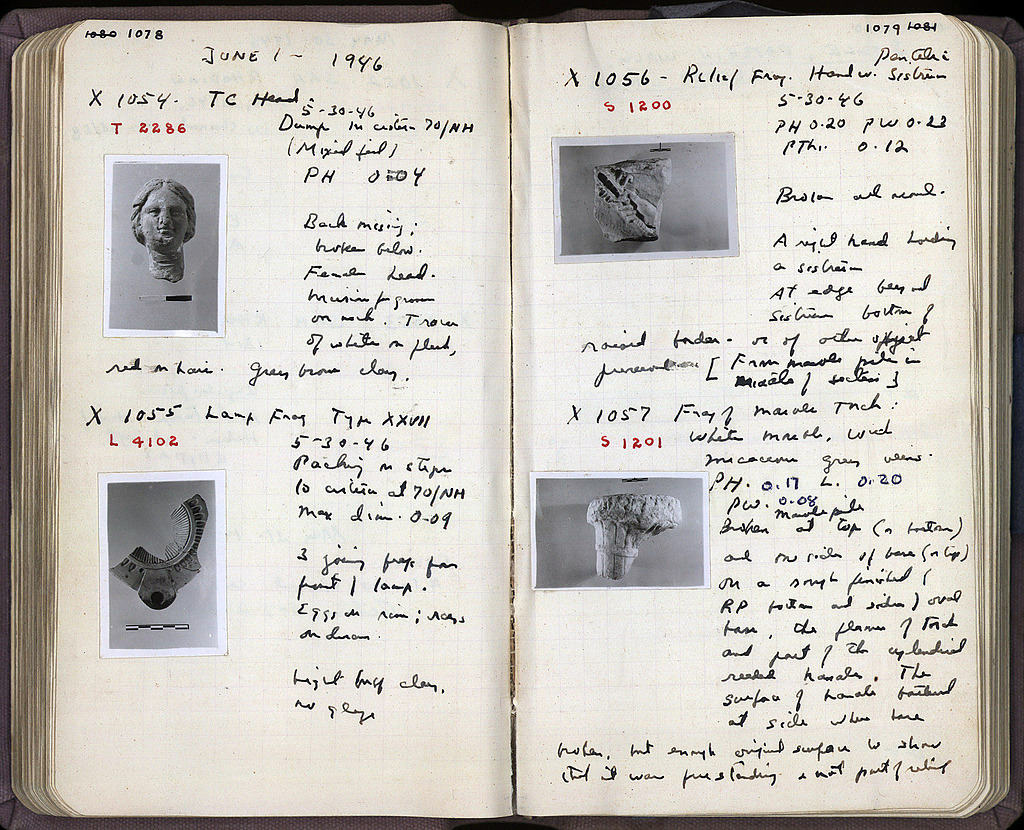 1080 1078
JUNE 1 - 1946
X 1054. TC Head.
T 2286
5-30-46
Dump in cistern 70/NH
(Mixed fill)
PH 0.04
Back missing;
broken below.
Female head.
Incision for groove
on neck. Traces
of white on flesh,
red on hair. Gray brown clay.
X 1055 Lamp Frag Type XXVII
L 4102
5-30-46
Packing on steps
to cistern at 70/NH
Max dim. 0.09
3 joining frags from
front of lamp.
Eggs on rim; rays
on discus.
Light buff clay,
no glaze
1079 1081
Pentelic
X 1056 - Relief Frag. Hand w. Sistrum
S 1200
5-30-46
PH 0.20 PW 0.23
PTh. 0.12
Broken all round.
A right hand holding
a sistrum
At edge beyond
sistrum bottom of
raised border - or of other object
preserved [From marble pile in
middle of section]
X 1057 Frag of Marble Torch:
S 1201
White marble, with
micaceous gray veins.
PH. 0.17 L. 0.20
PW. 0.08
Marble pile
Broken at top (or bottom)
and one side of base (or top)
On a rough finished (
RP bottom and sides) oval
base, the flames of torch
and part of the cylindrical
reeded handle. The
surface of handle battered
at side where base
broken, but enough original surface to show
that it was free standing & not part of relief